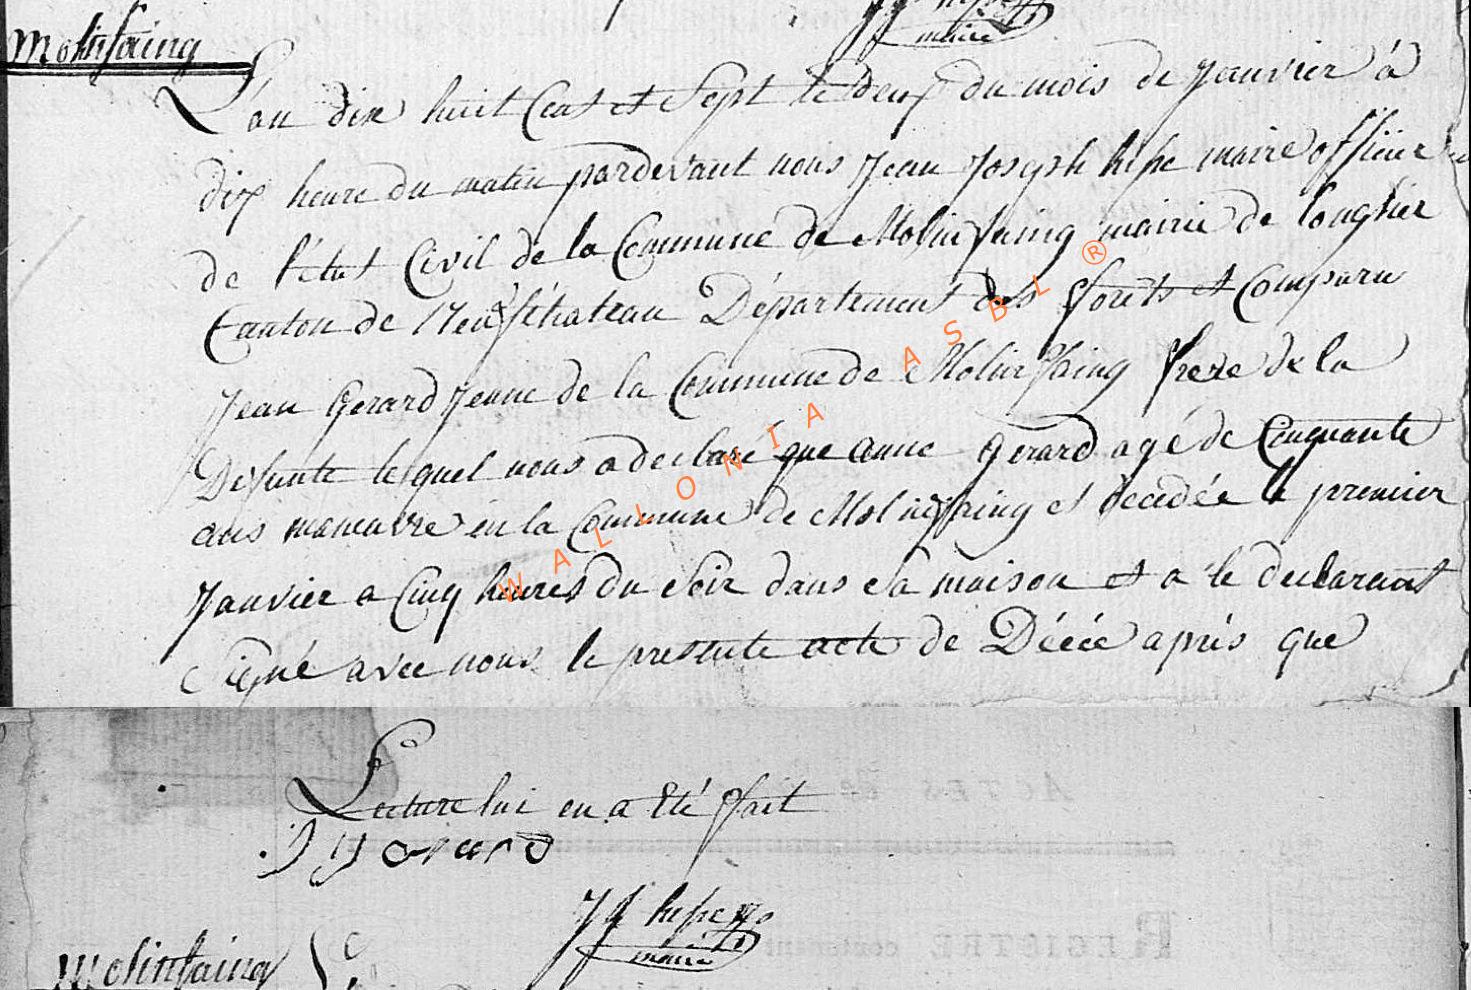 maire
Molinfaing
L'an dix huit Cent et Sept le deux du mois de Janvier à
dix heure du matin pardevant nous Jean Joseph hespe maire officier
de l'état Civil de la Commune de Molinfaing mairie de longlier
Canton de Neufchateau Département des forêts est Comparu
Jean Gerard Jeune de la Commune de Molinfaing frere de la
Defunte lequel nous a declaré que anne Gerard agé de Cinquante
ans maneuvre en la Commune de Molinfaing est decedée le premier
Janvier a Cinq heures du Soir dans sa maison et a le declarant
Signé avec nous le presente acte de Décée après que
Lecture lui en a été fait
JJ hespe
maire
Molinfaing
WALLONIA ASBL ®
ACTES de
REGISTRE contenant